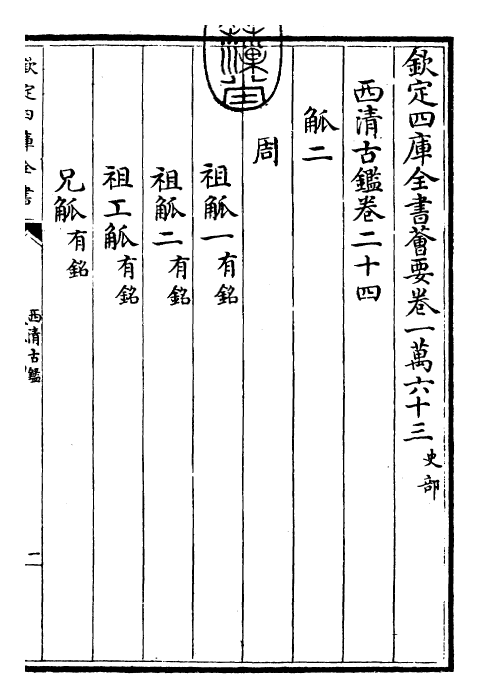 欽定四庫全書薈要卷一萬六十三 史部
西清古鑑卷二十四
觚二
周
祖觚一有銘
祖觚二有銘
祖工觚有銘
兄觚有銘
欽定四庫全書
西清古鑑